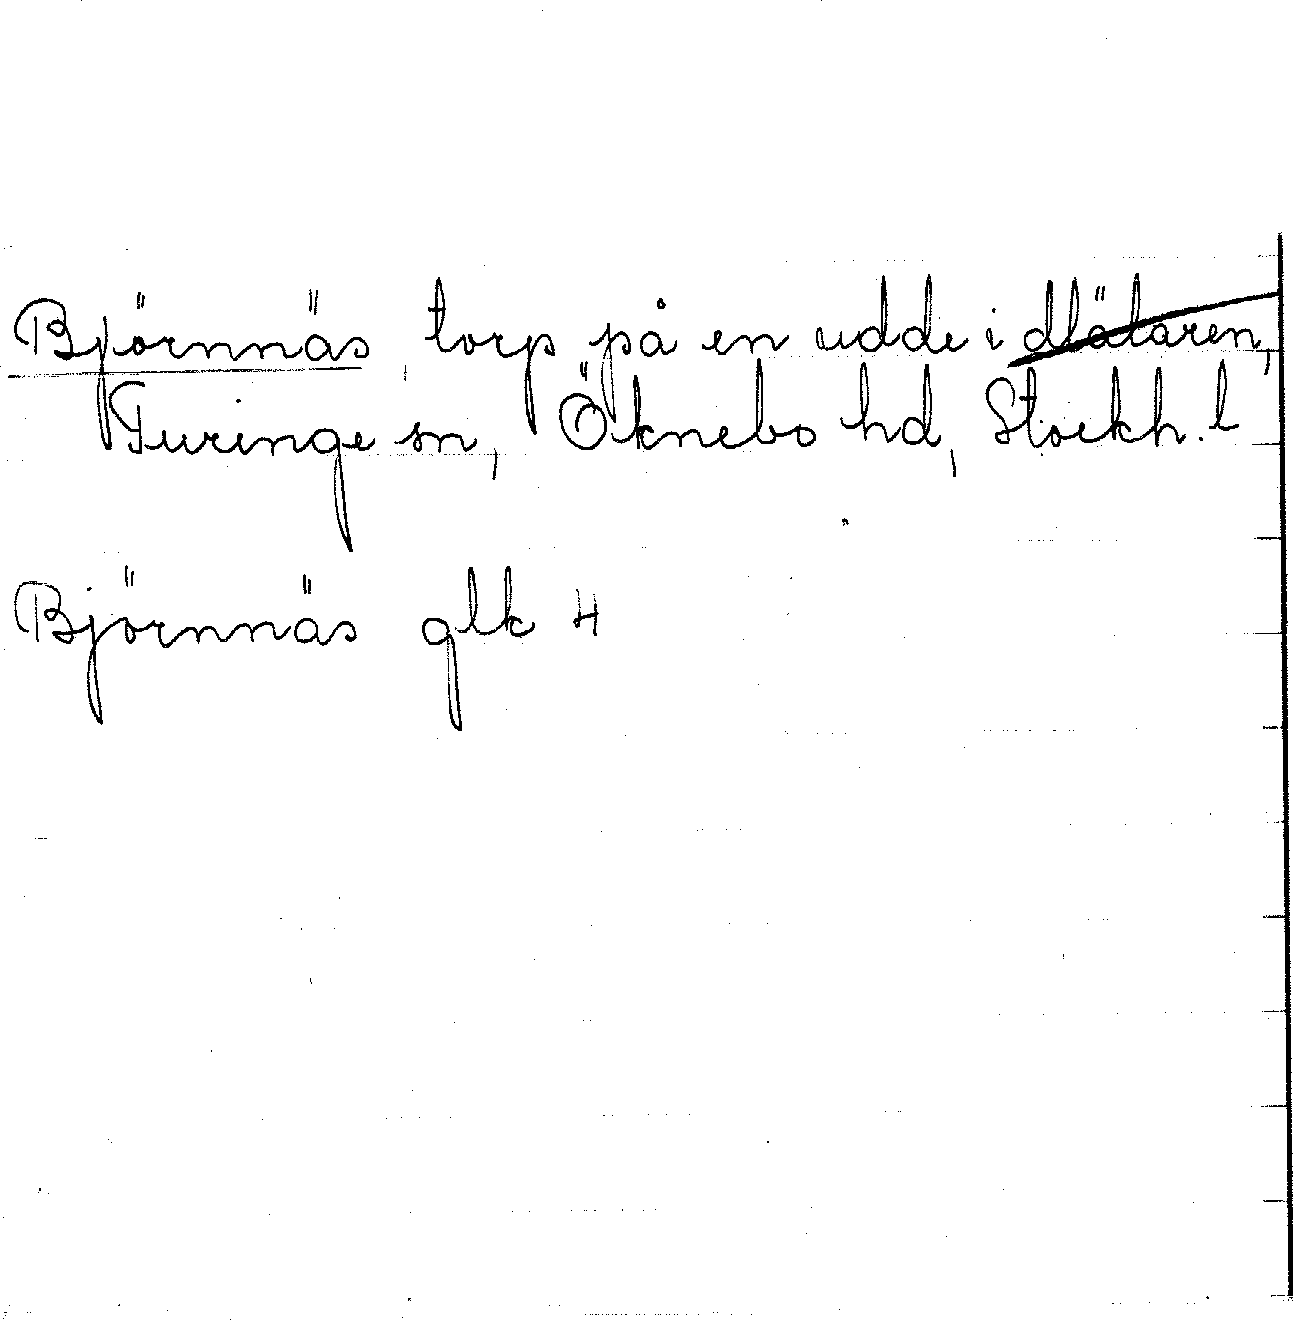 Björnnäs, torp på en udde i Mälaren,
Turinge sn, Öknebo hd, Stockh. l
Björnnäs glk 4